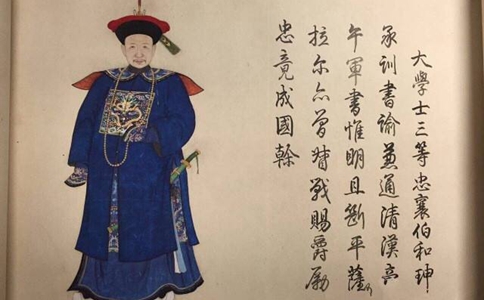 大學士三等忠襄伯和珅
承訓書諭兼通清漢旁
午軍書惟明且斷平薩
拉尔亦曾督戰賜爵励
忠竟成國幹